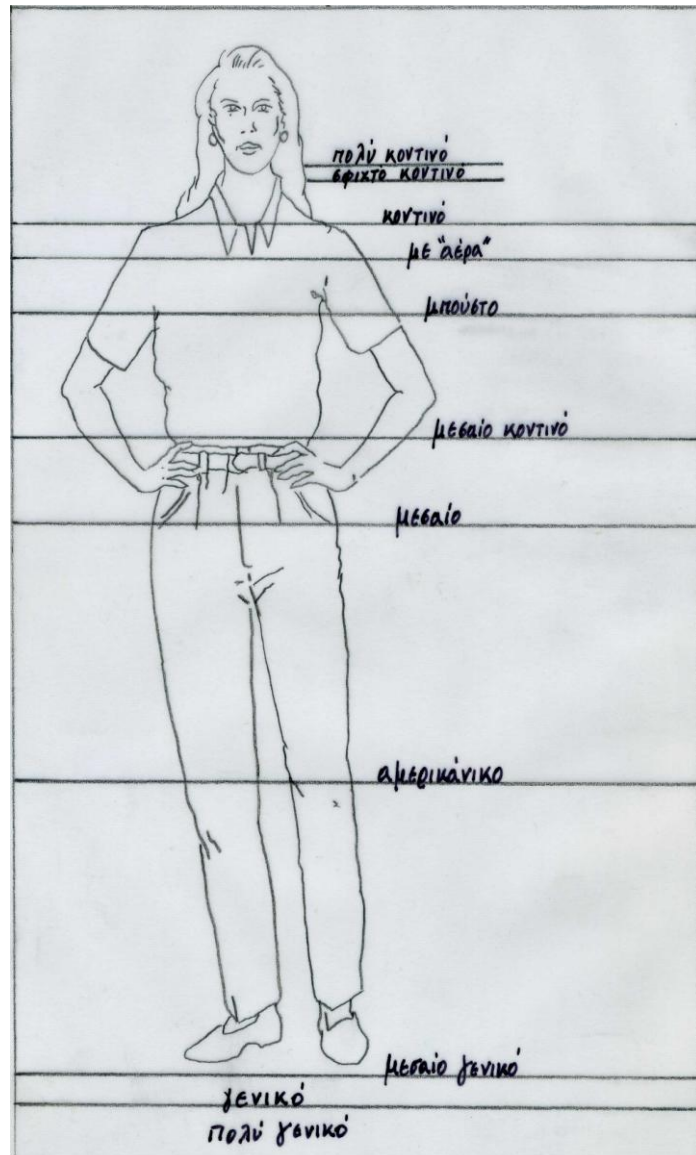 πολύ κοντινό
σφιχτό κοντινό
κοντινό
με "αέρα"
μπούστο
μεσαίο κοντινό
μεσαίο
αμερικάνικο
μεσαίο γενικό
γενικό
πολύ γενικό